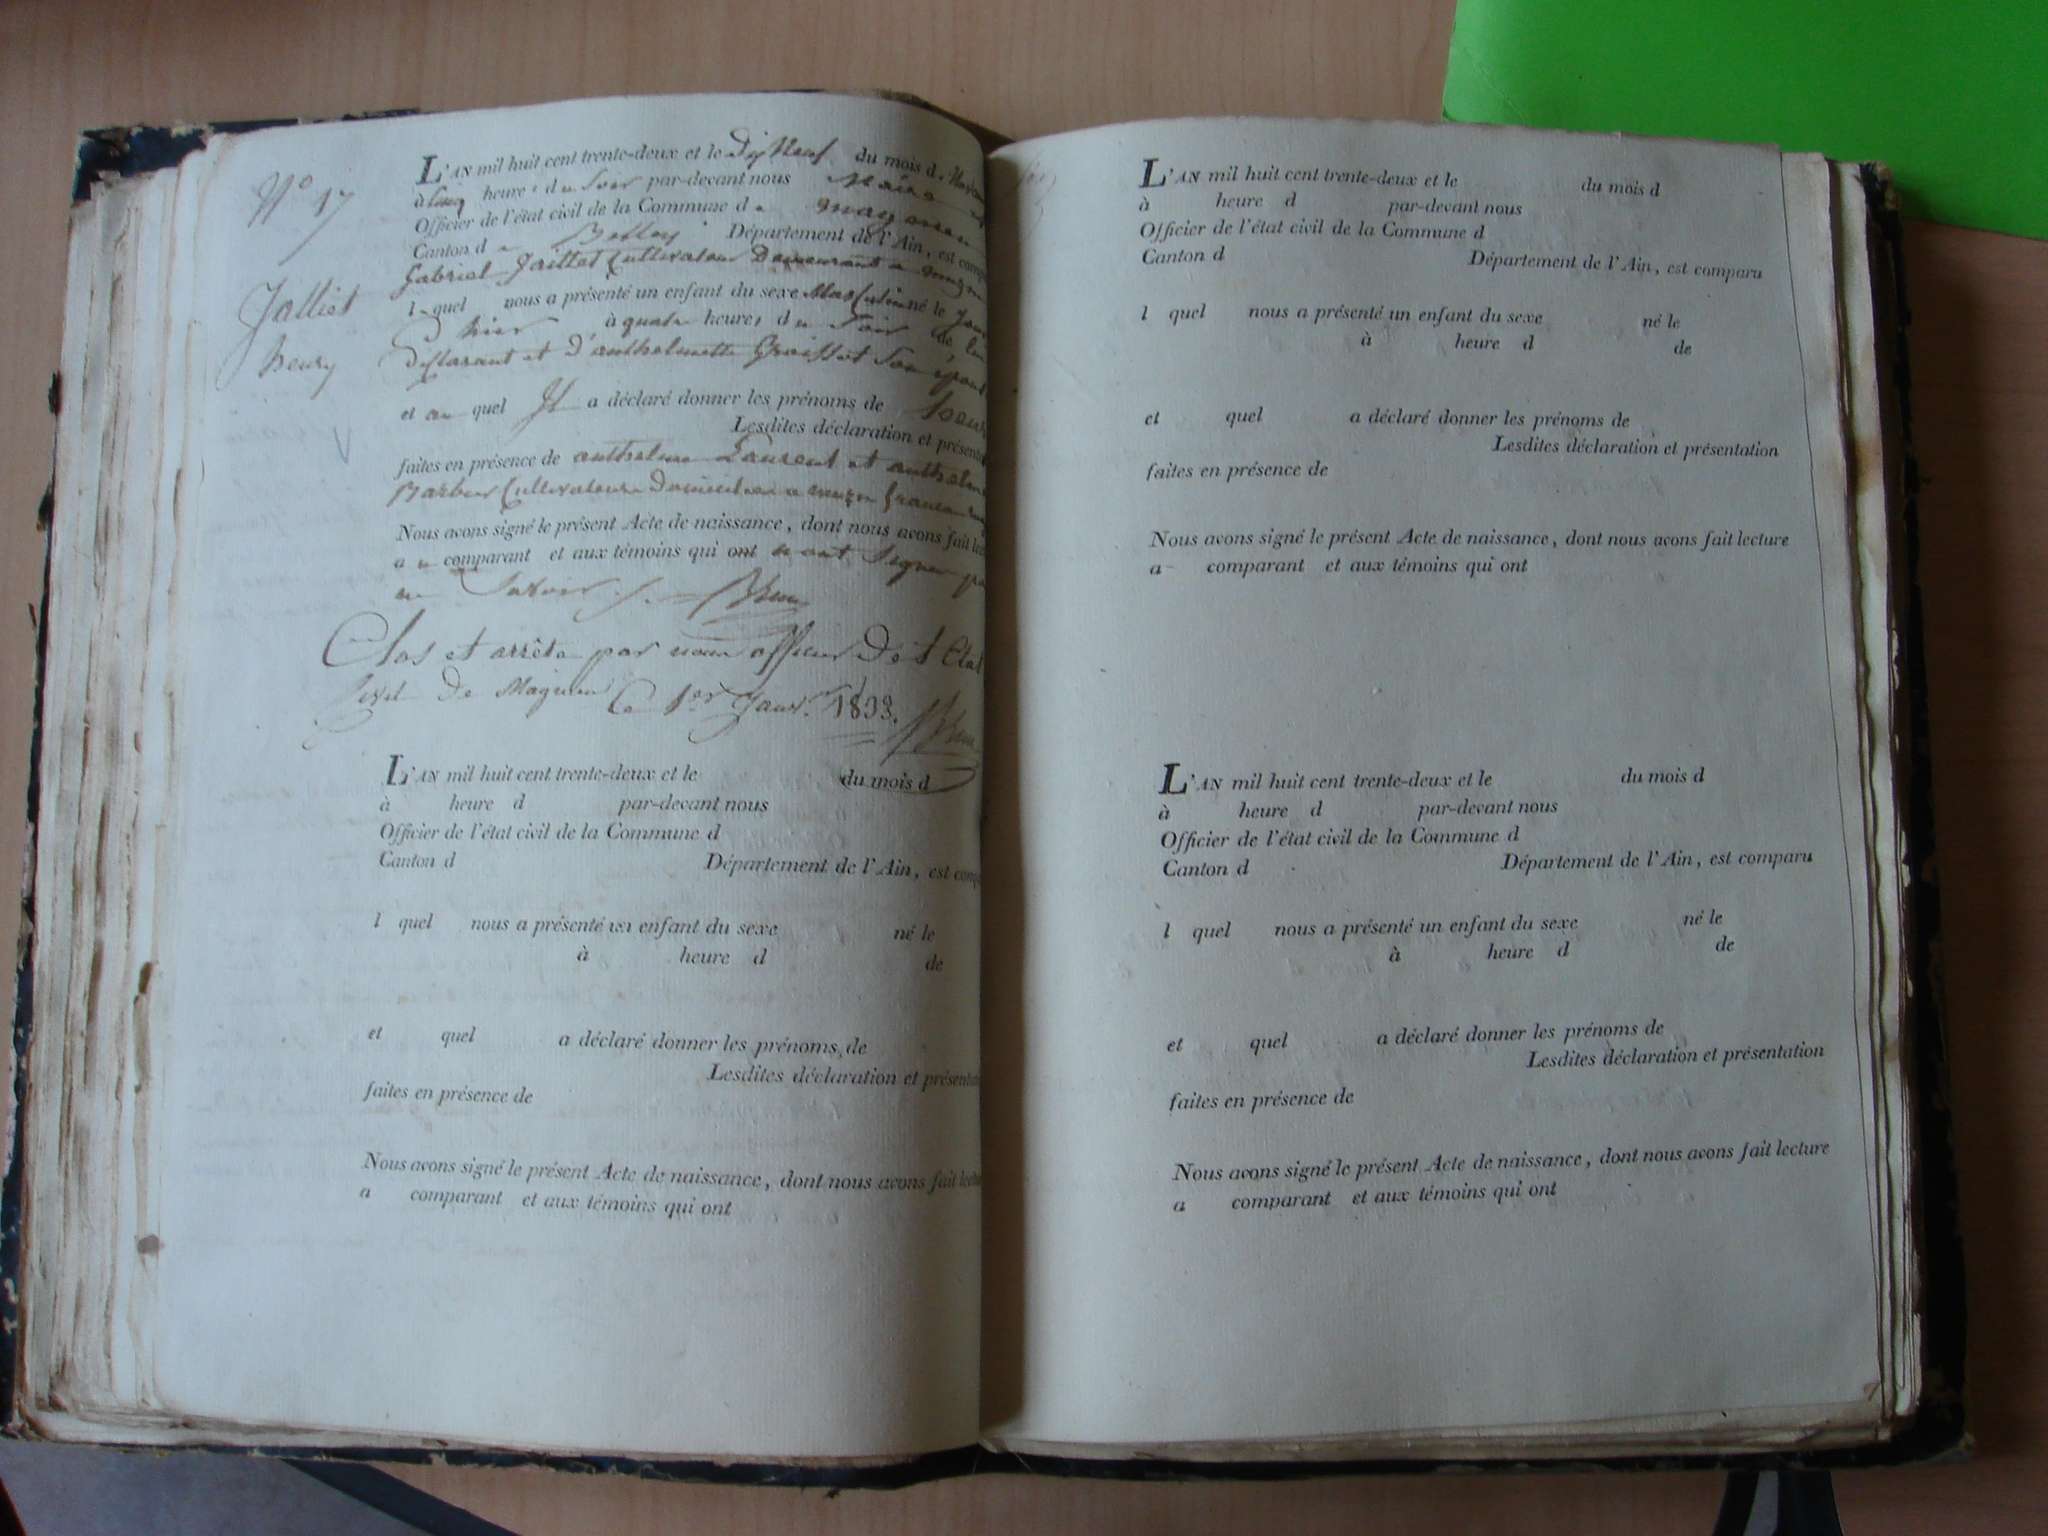 N° 17
Jalliet
henry
L'AN mil huit cent trente-deux et le dix Neuf du mois d
à Cinq heures du Soir par-devant nous Maire
Officier de l'état civil de la Commune de magnieu
Canton de Belley Département de l'Ain, est comp
Gabriel Jalliet Cultivateur Demeurant a
lequel nous a présenté un enfant du sexe Masculin né le jour
d'hier à quatre heures du Soir de lui
déclarant et d'anthelmette Groisset Son épouse
et au quel Il a déclaré donner les prénoms de henry
Lesdites déclaration et présenta
faites en présence de anthelme Laurent et anthelme
Barbier Cultivateurs
Nous avons signé le présent Acte de naissance, dont nous avons fait lec
au comparant et aux témoins qui ont n'ont Signer pour
ne Savoir
Clos et arrêté par nous officier De l'Etat
Civil De Magnieu Ce 1er Janvr. 1833.
L'AN mil huit cent trente-deux et le du mois d
à heure d par-devant nous
Officier de l'état civil de la Commune d
Canton d Département de l'Ain, est comp
l quel nous a présenté un enfant du sexe né le
à heure d de
et quel a déclaré donner les prénoms de
Lesdites déclaration et présenta
faites en présence de
Nous avons signé le présent Acte de naissance, dont nous avons fait lectu
a comparant et aux témoins qui ont
L'AN mil huit cent trente-deux et le du mois d
à heure d par-devant nous
Officier de l'état civil de la Commune d
Canton d Département de l'Ain, est comparu
l quel nous a présenté un enfant du sexe né le
à heure d de
et quel a déclaré donner les prénoms de
Lesdites déclaration et présentation
faites en présence de
Nous avons signé le présent Acte de naissance, dont nous avons fait lecture
a comparant et aux témoins qui ont
L'AN mil huit cent trente-deux et le du mois d
à heure d par-devant nous
Officier de l'état civil de la Commune d
Canton d Département de l'Ain, est comparu
l quel nous a présenté un enfant du sexe né le
à heure d de
et quel a déclaré donner les prénoms de
Lesdites déclaration et présentation
faites en présence de
Nous avons signé le présent Acte de naissance, dont nous avons fait lecture
a comparant et aux témoins qui ont